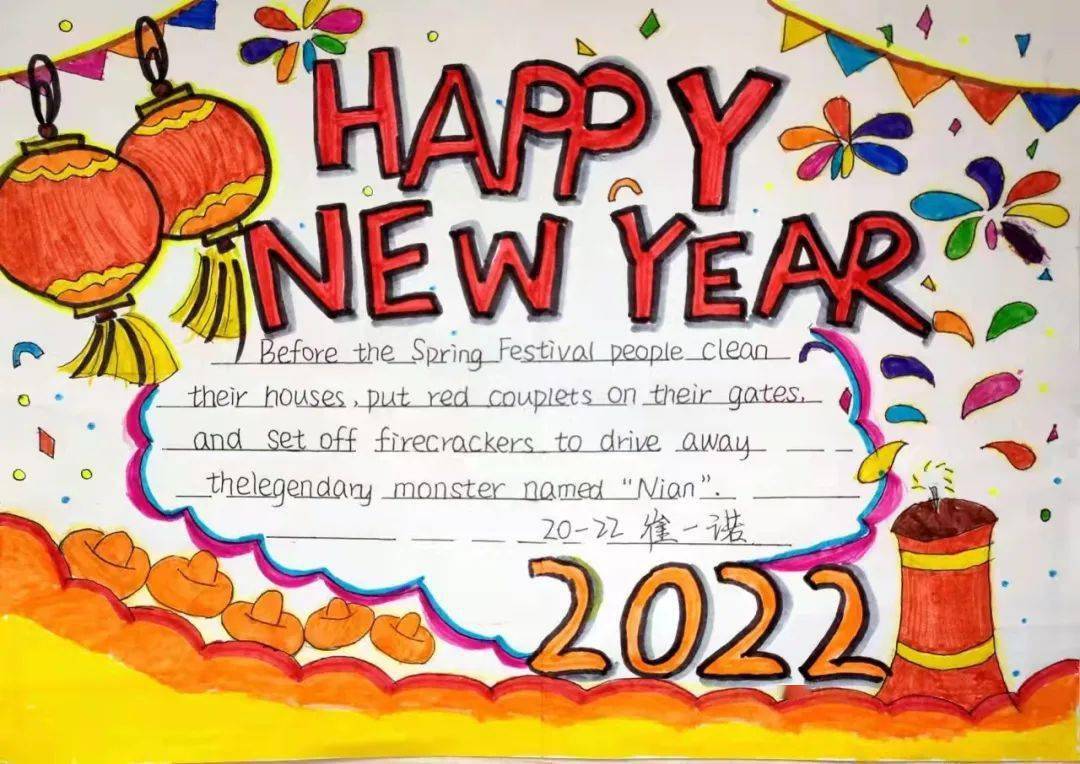 HAPPY
NEW YEAR
Before the Spring Festival people clean
their houses, put red couplets on their gates,
and set off firecrackers to drive away
thelegendary monster named "Nian".
20-22 崔一诺
2022